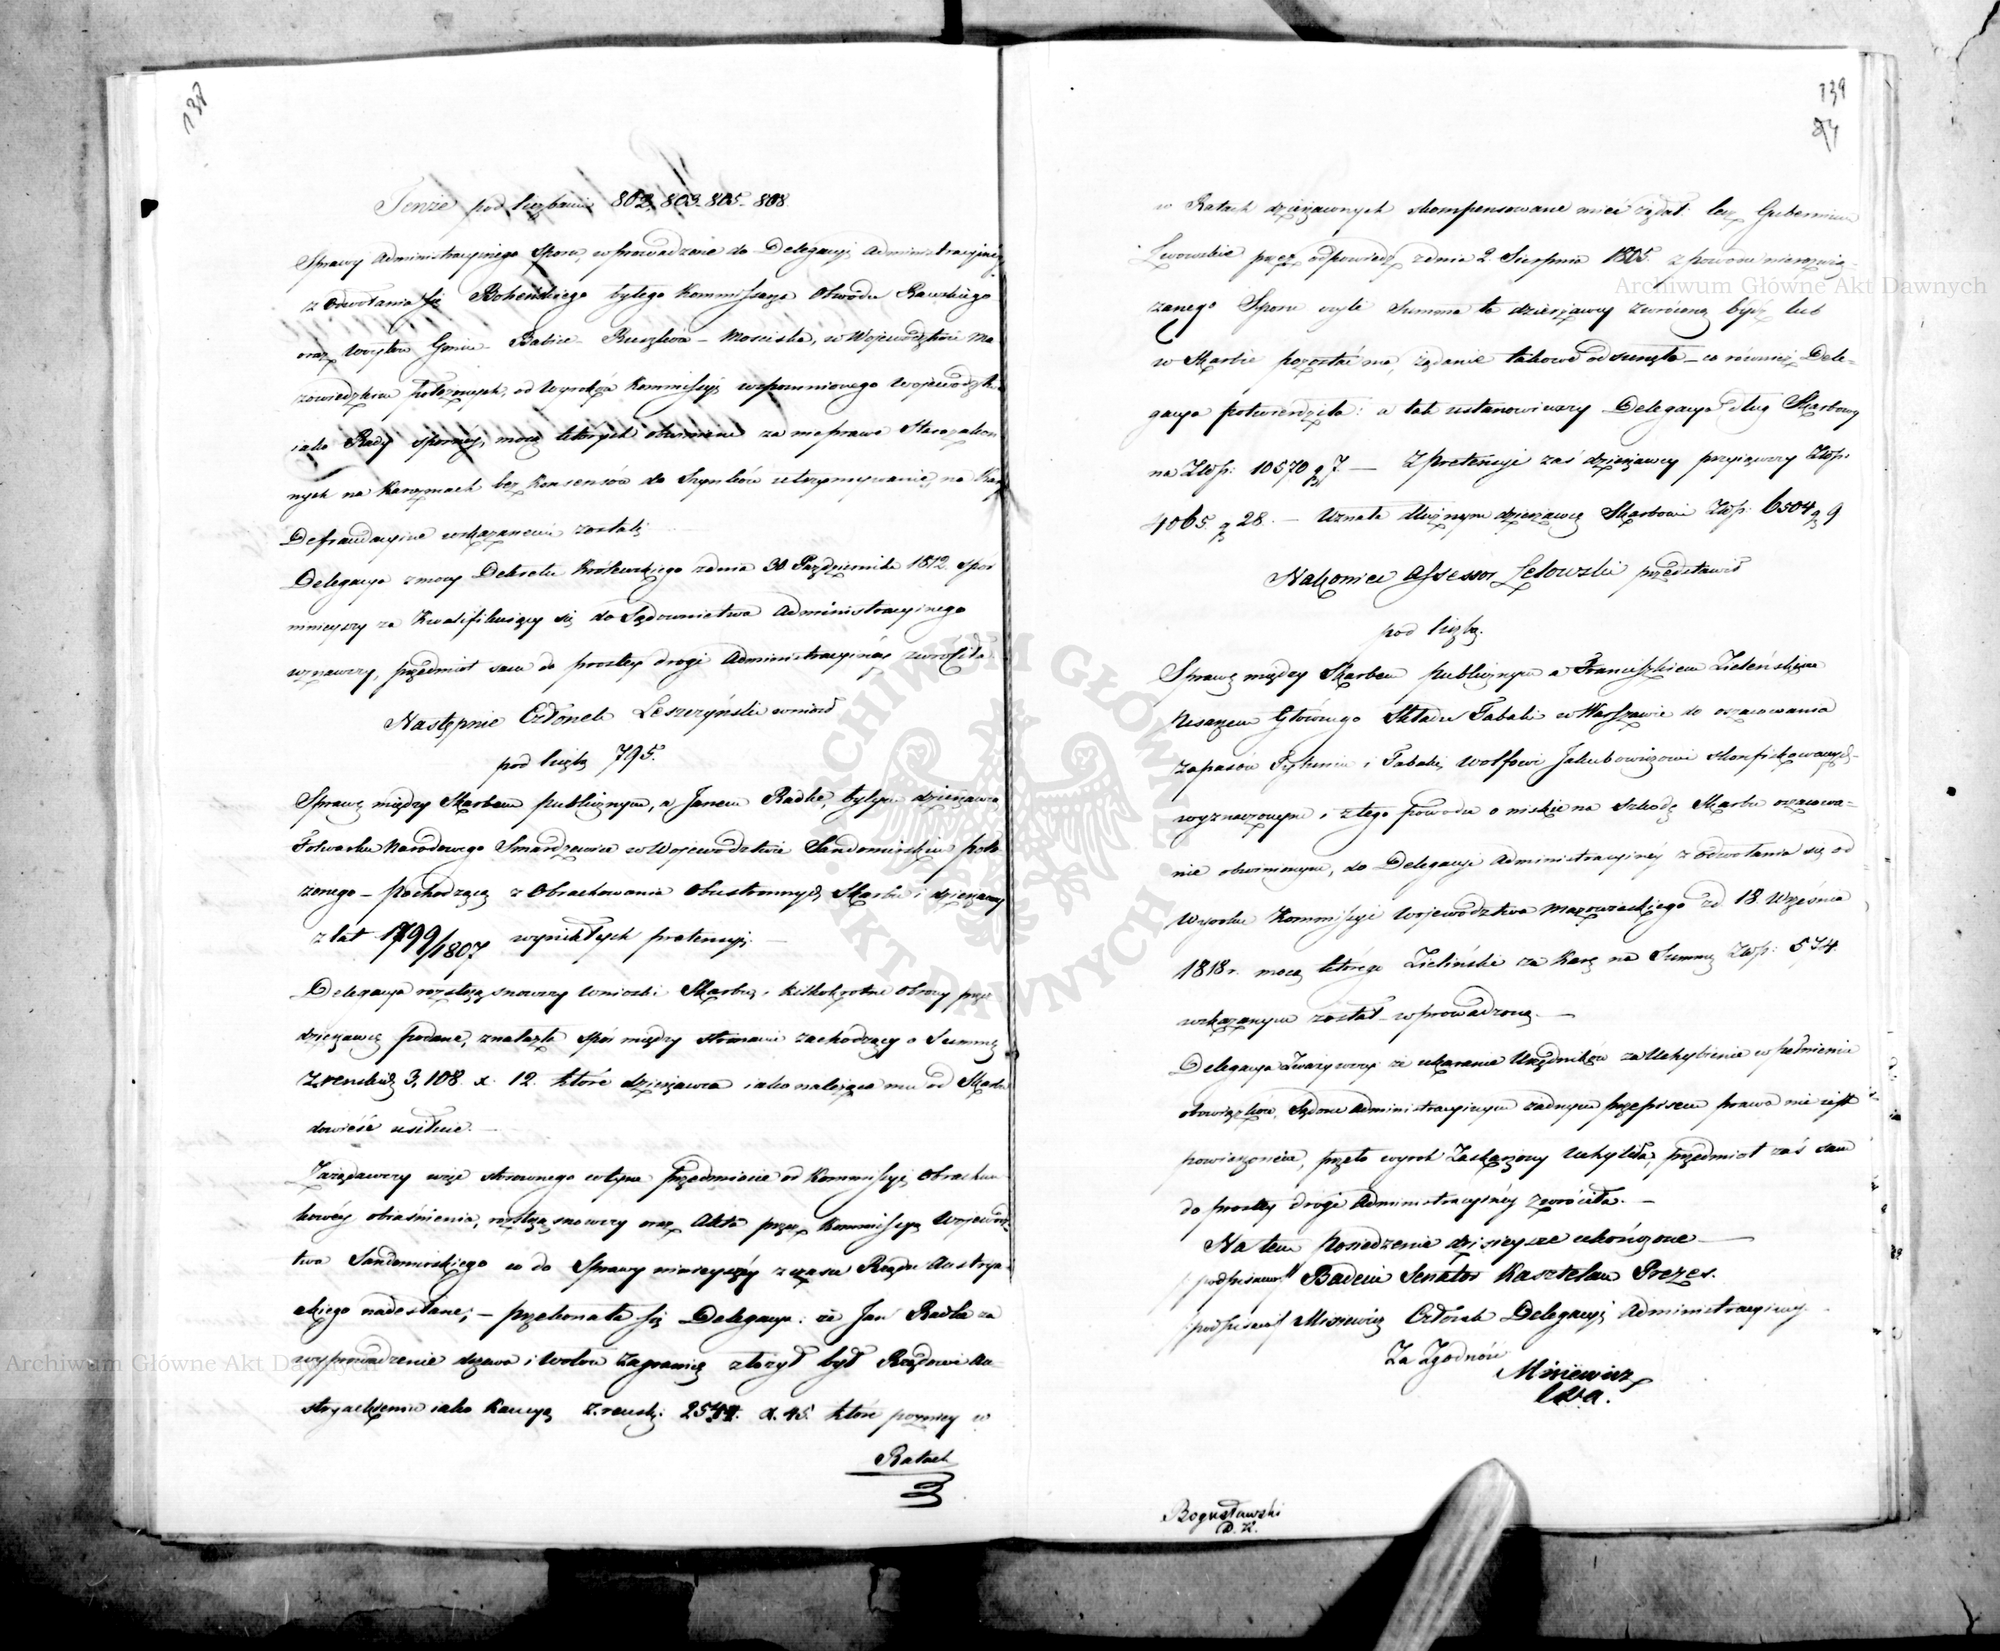 138
Tenże pod liczbami 802, 803. 805. 808.
Sprawy Administracyinego Sporu, wprowadzone do Delegacyi Administracyiney
z odwołania się Boheńskiego byłego Kommissarza Obwodu Rawskiego
oraz Woytów Gmin Babice Mościska, w Województwie Ma-
zowieckiem położonych, od Wyroków Kommissyi wspomnionego Województwa
iako Rady sporney, mocą których obwinieni za nieprawe Starozakon
nych na Karczmach bez Konsensów do Szynków utrzymywanie, na Kary
Defraudacyine wskazanemi zostali
Delegacya z mocy Dekretu Królewskiego z dnia 30 Października 1812. spór
ninieyszy za Kwalifikuiący się do Sądownictwa Administracyinego
uznawszy, przedmiot sam do prostey drogi Administracyiney zwróciła.
Następnie Członek Leszczyński wniósł
pod liczbą 795.
Sprawę między Skarbem publicznym, a Janem Radke, byłym dzierżawcą
Folwarku Narodowego Smardzewice w Województwie Sandomirskim poło
żonego – pochodzącą z Obrachowania Obustronnych Skarbu i dzierżawcy
z lat 1799/1807 wynikłych pretensyi. —
Delegacya roztrząsnąwszy wnioski Skarbu, i kilkokrotne obrony przez
dzierżawcę podane, znalazła spór między stronami zachodzący o Summę
Z.reńskich 3,108. x. 12. które dzierżawca iako należące mu od Skarbu
dowieść usiłuie. —
Zażądawszy więc stosownego w tym przedmiocie od Kommissyi Obrachun
kowey obiaśnienia, roztrząsnąwszy oraz Akta przez Kommissyą Wojewódz
twa Sandomirskiego co do Sprawy ninieyszey z czasu Rządu Austrya-
ckiego nadesłane; – przekonała się Delegacya: że Jan Radke za
wyprowadzenie drzewa i wołów zagranicę złożył był Rządowi Au-
stryackiemu iako Kaucyą Z.reńsk: 2544. x. 45. które poźniey w
Ratach
139
w Ratach dzierżawnych skompensowane mieć żądał: lecz Gubernium
Lwowskie przez odpowiedź z dnia 2. Sierpnia 1805. z powodu nierozwią-
zanego Sporu czyli Summa ta dzierżawcy zwróconą być lub
w Skarbie pozostać ma, żądanie takowe odsunęło – co również Dele-
gacya potwierdziła: a tak ustanowiwszy Delegacya dług Skarbowy
na Złłp: 10570 g 7 — Z pretensyi zaś dzierżawcy przyiąwszy Złłp:
4065. g 28. – Uznała dłużnym dzierżawcę Skarbowi Złłp: 6504 g 9
Nakoniec Assessor Łętowski przedstawił
pod liczbą.
Sprawę między Skarbem publicznym a Franciszkiem Zieleńskim
Pisarzem Głównego Składu Tabaki w Warszawie do oszacowania
zapasów Tytuniu i Tabaki, Wolfowi Jakubowiczowi skonfiskowanych
wyznaczonym i z tego powodu o niskie na Szkodę Skarbu oszacowa-
nie obwinionym, do Delegacyi Administracyiney z odwołania się od
Wyroku Kommissyi Województwa Mazowieckiego z d 18 Września
1818 r. mocą którego Zieliński za Karę na Summę Złłp: 574.
wskazanym został – wprowadzoną. —
Delegacya Zważywszy że ukaranie Urzędników za Uchybienie w pełnieniu
obowiązków, Sądom Administracyinym żadnym przepisem prawa nie iest
powierzonem, przeto wyrok Zaskarżony uchyliła, przedmiot zaś sam
do prostey drogi Administracyiney zwróciła. —
Na tem Posiedzenie dzisieysze ukończone —
/podpisano/ Badeni Senator Kasztelan Prezes.
/podpisano/ Misiewicz Członek Delegacyi Administracyiney.
Za Zgodność
Misiewicz
Bogusławski
Archiwum Główne Akt Dawnych
Archiwum Główne Akt Dawnych
ARCHIWUM GŁÓWNE AKT DAWNYCH